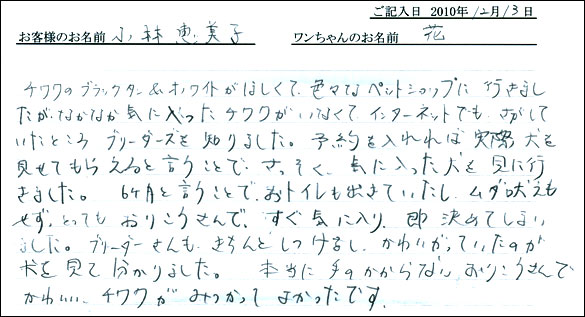 ご記入日 2010年12月13日
お客様のお名前 小林恵美子 ワンちゃんのお名前 花
チワワのブラックタン&ホワイトがほしくて、色々なペットショップに行きまし
たが、なかなか気に入ったチワワがいなくて、インターネットでも、さがして
いたところ ブリーダーズを知りました。予約を入れれば実際犬を
見せてもらえると言うことで、さっそく、気に入った犬を見に行
きました。 6ヶ月と言うことで、おトイレも出きていたし、ムダ吠えも
せず、とってもおりこうさんで、すぐ気に入り、即決めてしまい
ました。ブリーダーさんも、きちんとしつけるし、かわいがっていたのが
犬を見て分かりました。 本当に手のかからないおりこうさんで
かわいい、チワワがみつかってよかったです。